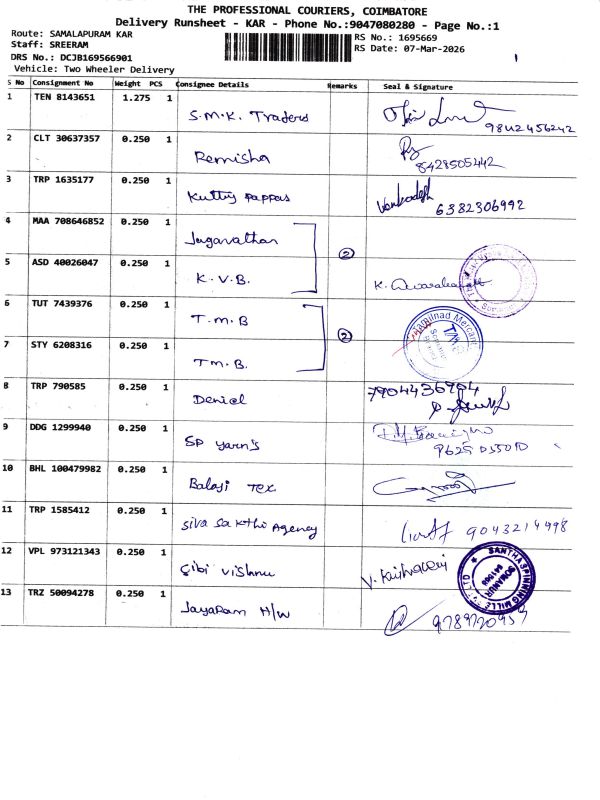 THE PROFESSIONAL COURIERS, COIMBATORE
Delivery Runsheet - KAR - Phone No.:9047080280 - Page No.:1
Route: SAMALAPURAM KAR
RS No.: 1695669
Staff: SREERAM
RS Date: 07-Mar-2026
DRS No.: DCJB169566901
Vehicle: Two Wheeler Delivery
S No Consignment No Weight PCS Consignee Details Remarks Seal & Signature
1 TEN 8143651 1.275 1 S.M.K. Traders 9842456242
2 CLT 30637357 0.250 1 Remisha 8428505442
3 TRP 1635177 0.250 1 Kutty pappas Venkadesh 6382306992
4 MAA 708646852 0.250 1 Jaganathan
2
5 ASD 40026047 0.250 1 K.V.B. K.
6 TUT 7439376 0.250 1 T.M.B
2 Tamilnad Mercant
7 STY 6208316 0.250 1 T.M.B.
8 TRP 790585 0.250 1 Deniel 7904436964
9 DDG 1299940 0.250 1 SP Yarn's
10 BHL 100479982 0.250 1 Balaji Tex
11 TRP 1585412 0.250 1 Siva Sakthi Agency 9043214498
12 VPL 973121343 0.250 1 Sibi Vishnu V. SANTHA SPINNING MILLS LTD SOMANUR
13 TRZ 50094278 0.250 1 Jayaram H/W 9789720957